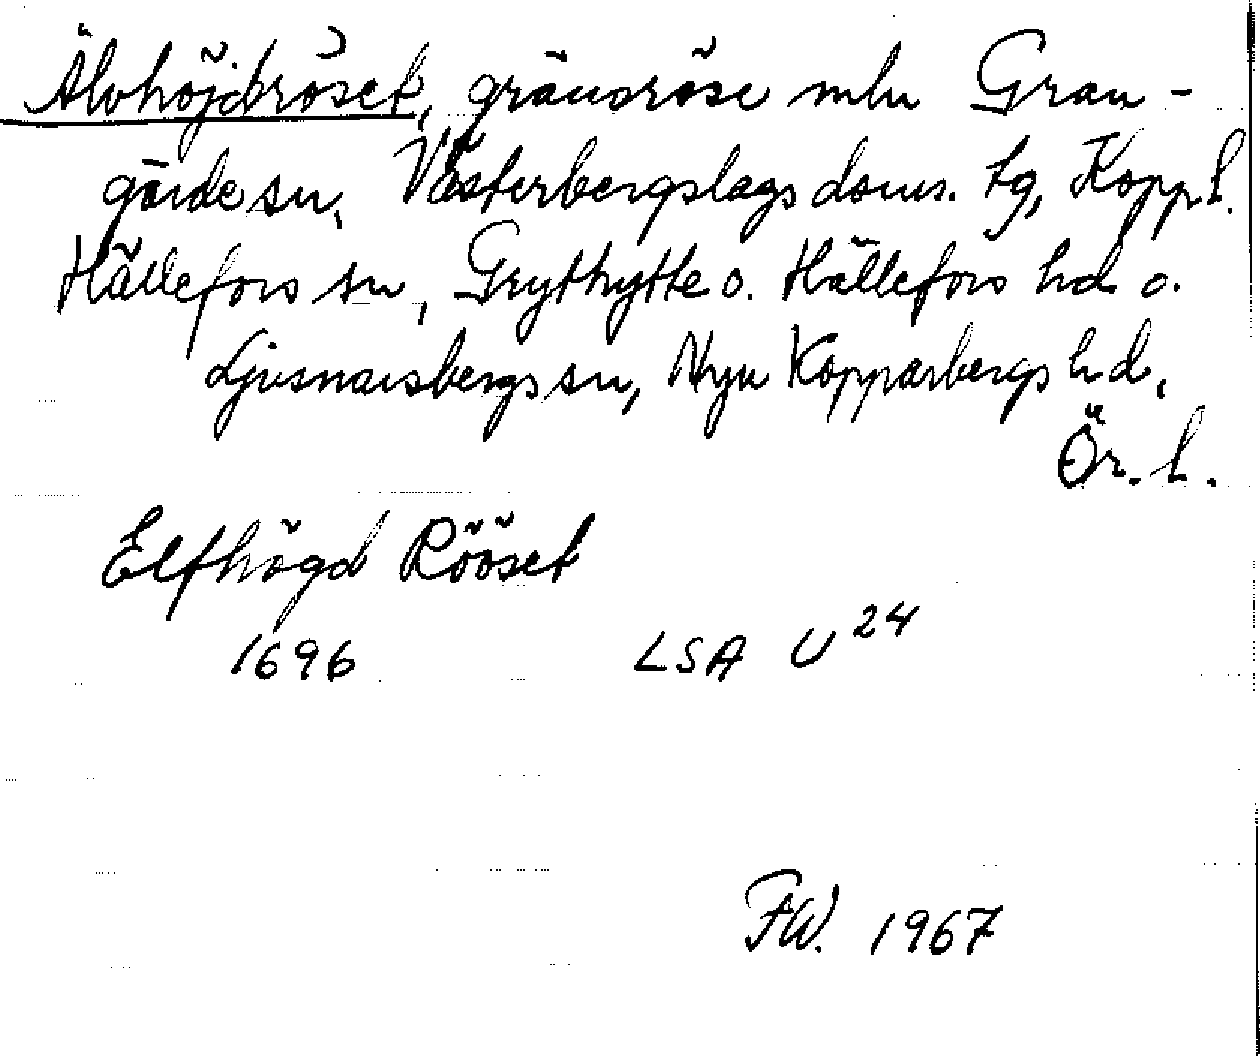 Älvhöjdröset, gränsröse mln Gran-
gärde sn, Västerbergslags doms. tg, Kopp. l.
Hällefors sn, Grythytte o. Hällefors hd o.
Ljusnarsbergs sn, Nya Kopparbergs hd,
Ör. l.
Elfhögd Rööset
1696 LSA U 24
FW. 1967